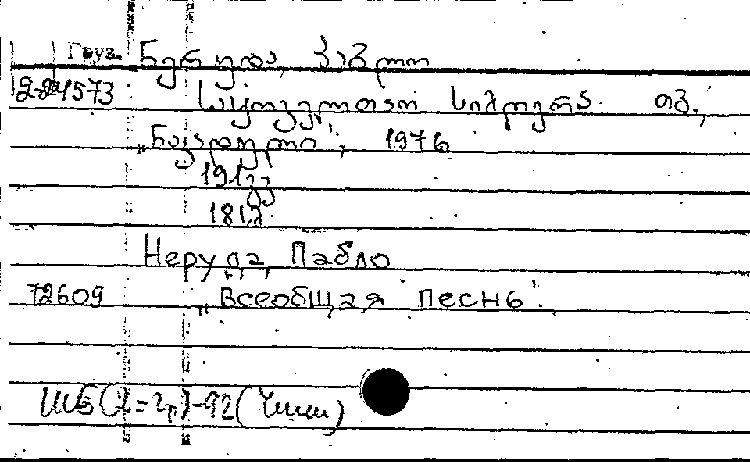 Груз. ნერუდა, პაბლო
2-24573 საყოველთაო სიმღერა თბ.,
„ნაკადული“, 1976
191გვ
181გ
Неруда, Пабло
72609 „Всеобщая песнь“.
И(Чили)